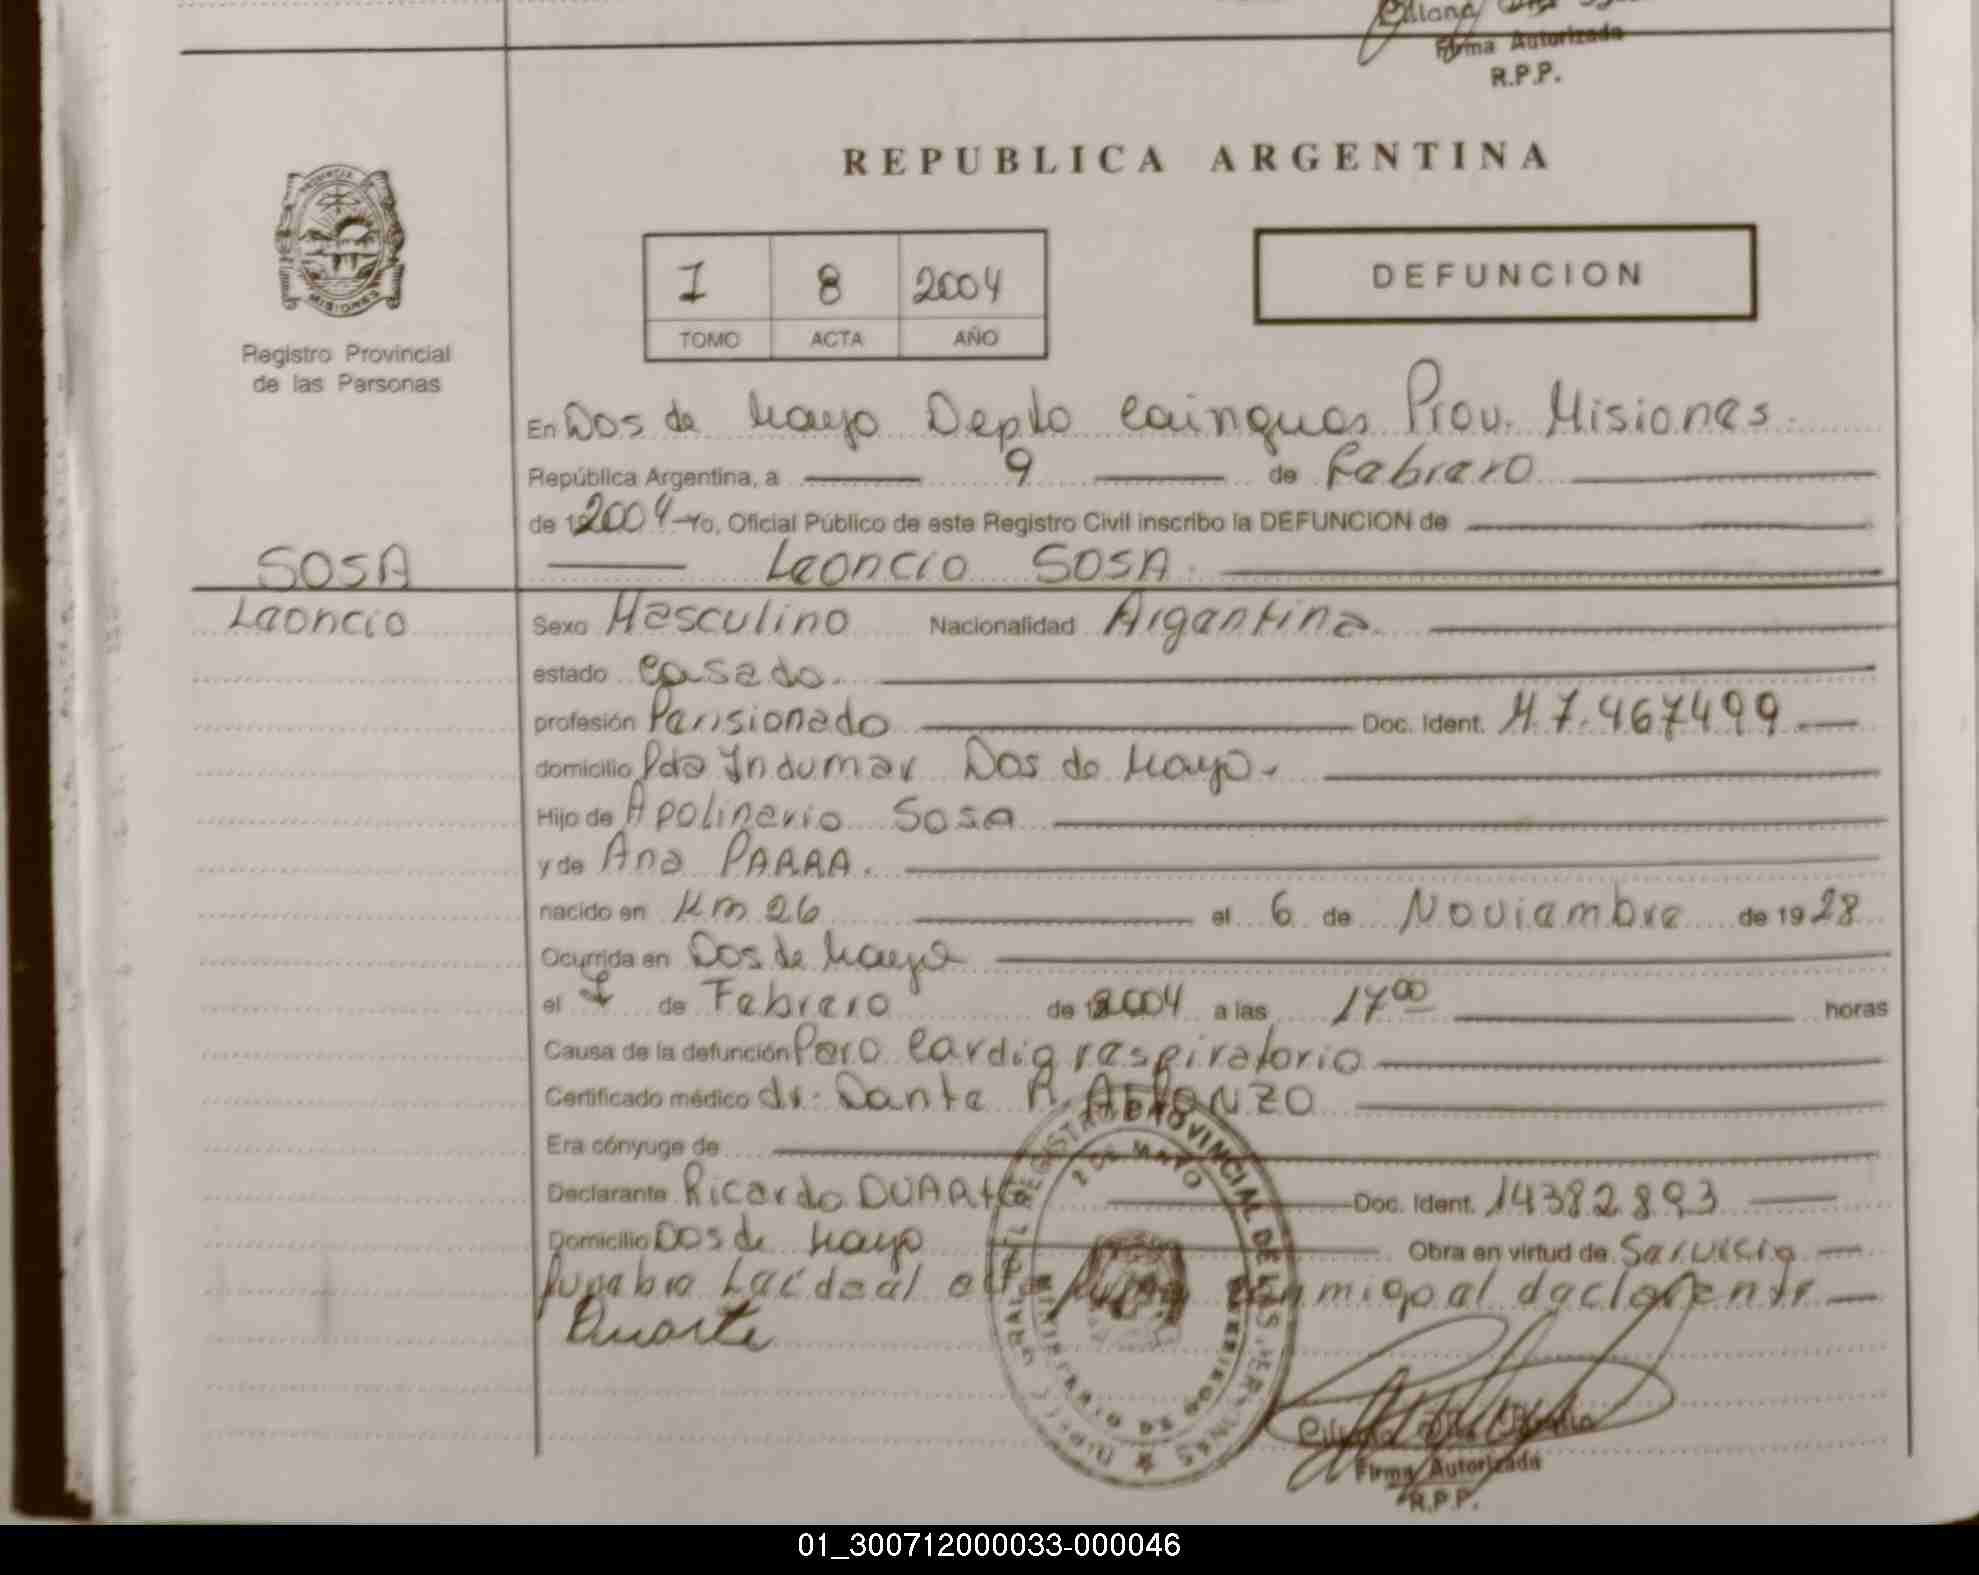 Firma Autorizada
R.P.P.
REPUBLICA ARGENTINA
PROVINCIA DE MISIONES
Registro Provincial
de las Personas
I 8 2004
TOMO ACTA AÑO
DEFUNCION
En Dos de Mayo Depto Cainguas Prov. Misiones.
República Argentina, a 9 de Febrero
de 2004 Yo, Oficial Público de este Registro Civil inscribo la DEFUNCION de
SOSA
Leoncio
Leoncio SOSA.
Sexo Masculino Nacionalidad Argentina.
estado Casado.
profesión Pensionado Doc. Ident. M.7.467499.
domicilio Pda Indumar Dos de Mayo.
Hijo de Apolinario Sosa
y de Ana PARRA.
nacido en Km 26 el 6 de Noviembre de 1928
Ocurrida en Dos de Mayo
el de Febrero de 2004 a las 17 00 horas
Causa de la defunción Paro Cardio respiratorio
Certificado médico dr. Dante R. AFONZO
Era cónyuge de
Declarante Ricardo DUARTE Doc. Ident. 14382893
Domicilio Dos de Mayo Obra en virtud de Servicio
funebre conmigo al declarante
Duarte
REGISTRO PROVINCIAL DE LAS PERSONAS
2 DE MAYO
MINISTERIO DE GOBIERNO
Firma Autorizada
R.P.P.
01_300712000033-000046